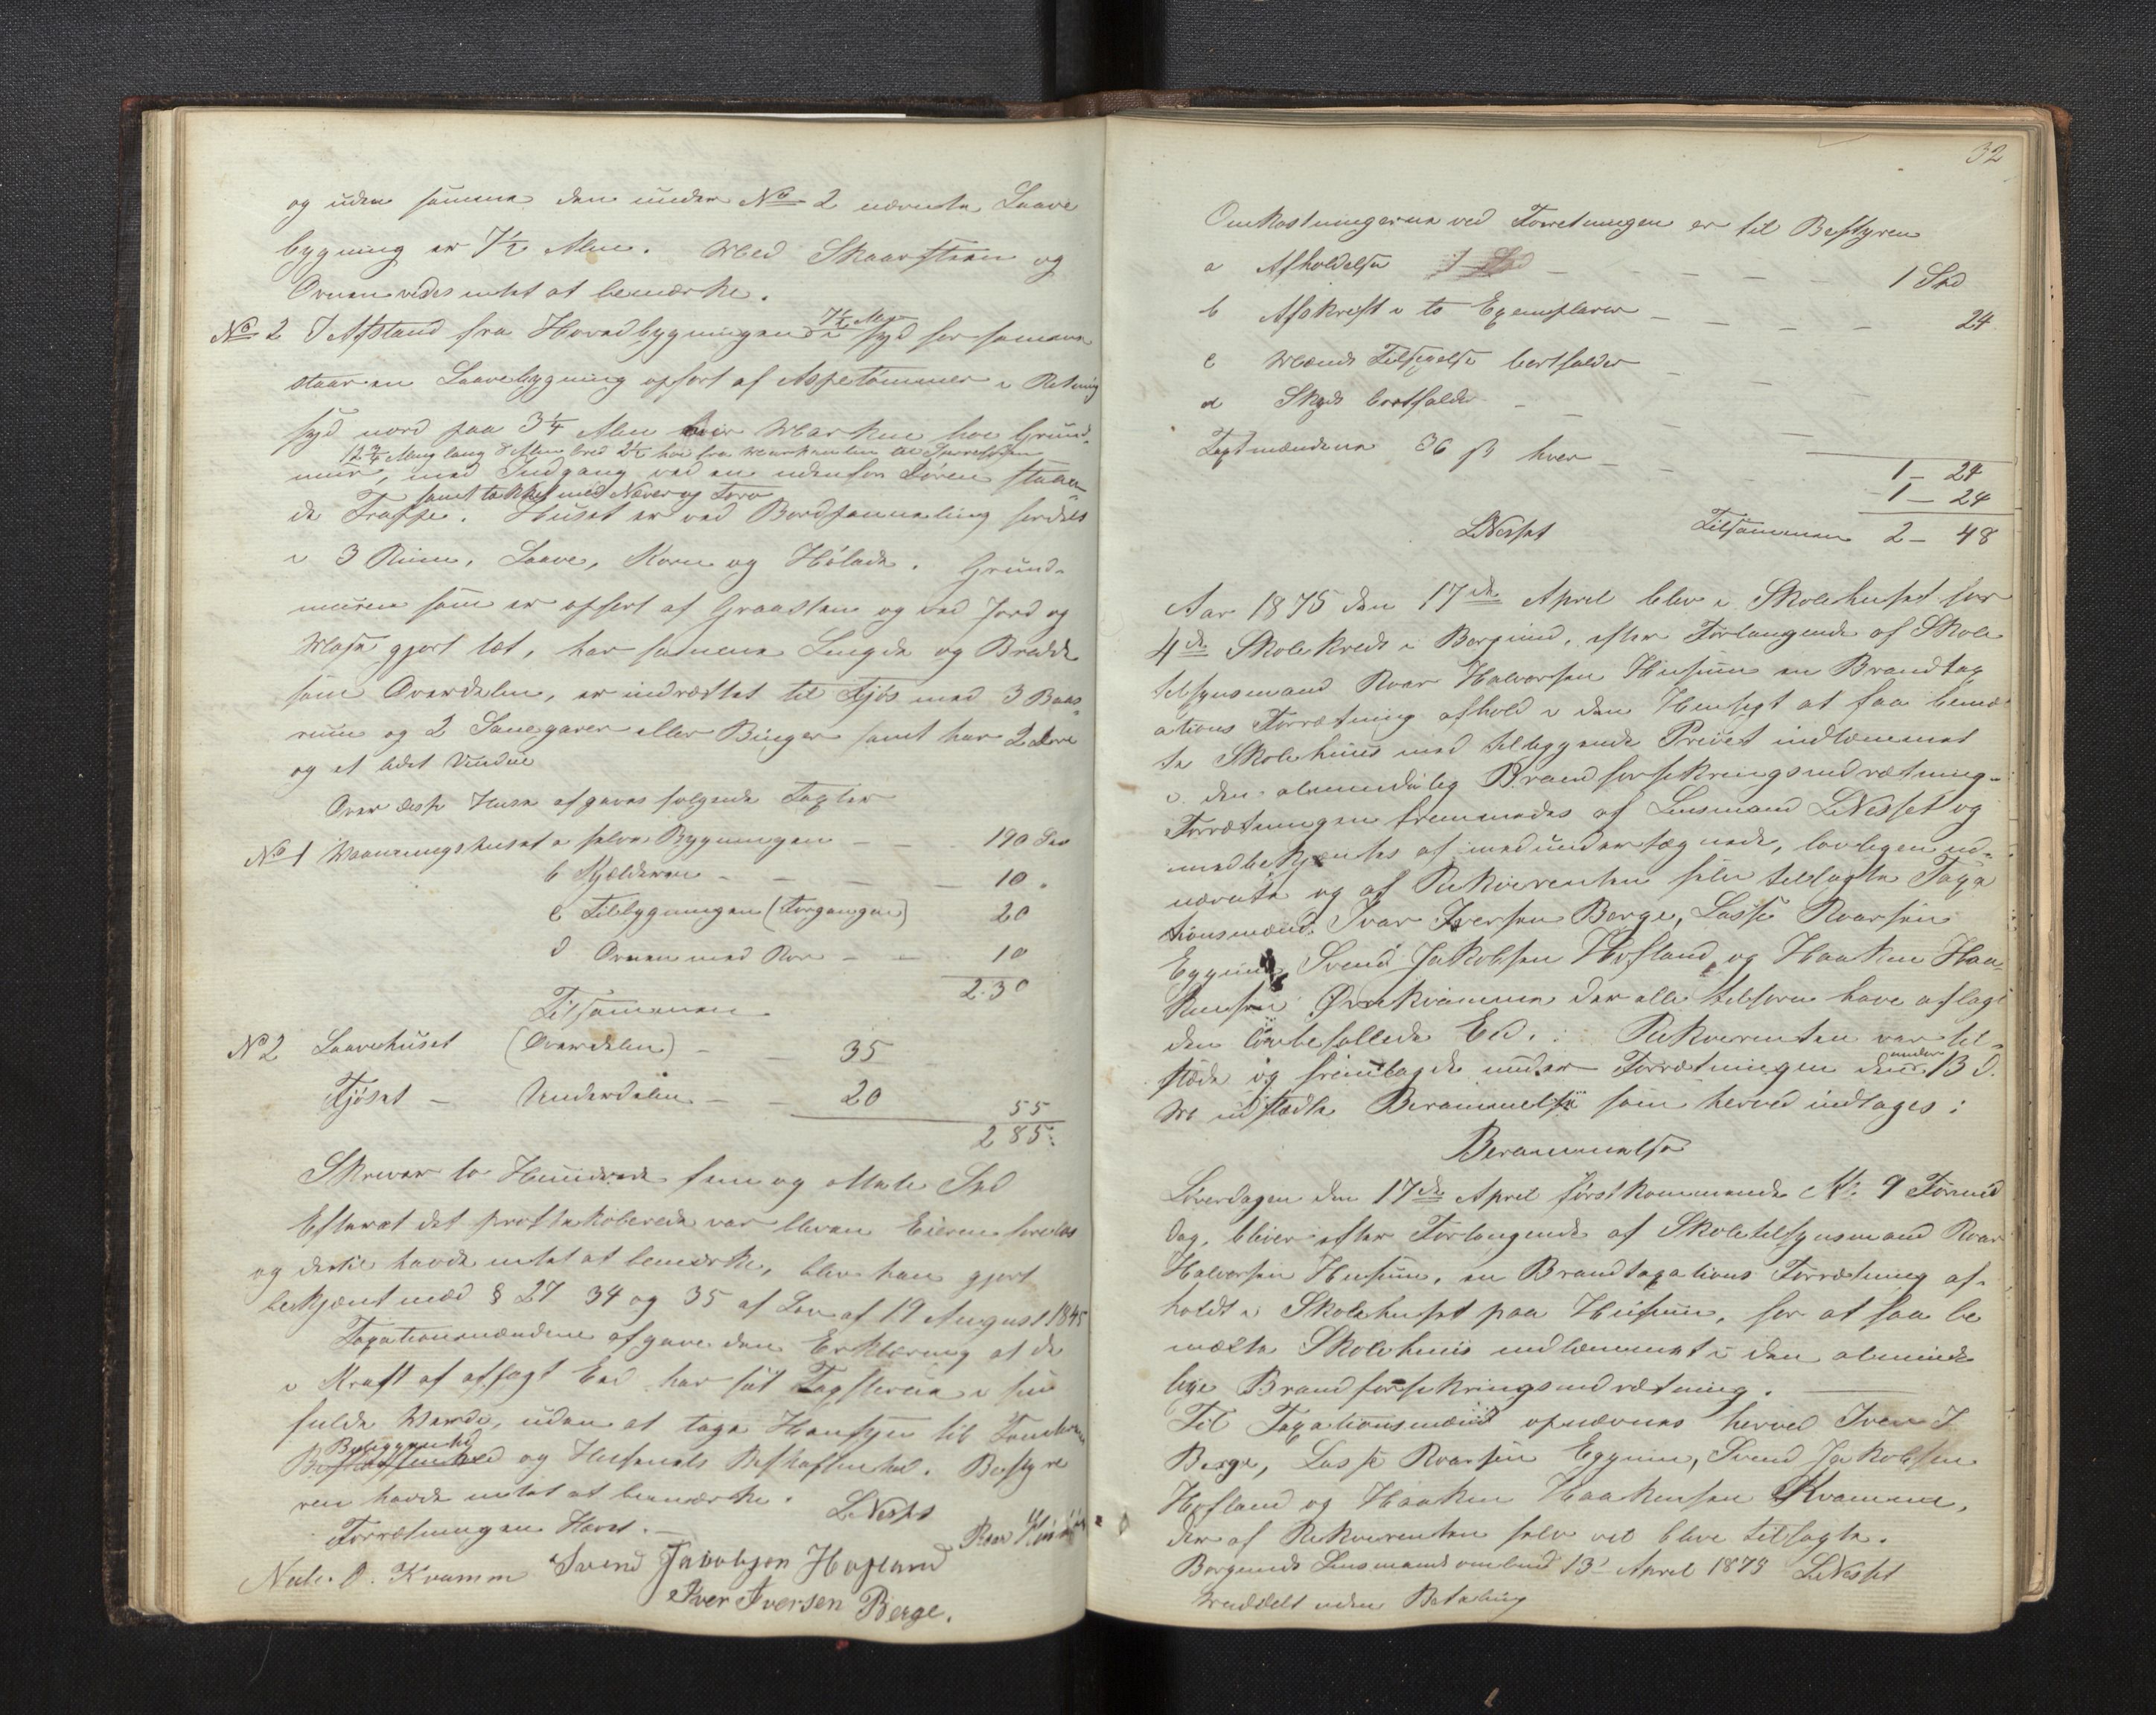 og uden samme den under No 2 nævnte Laave
bygning er 7½ Alen. Med Skaarsteen og
Ovnen vides intet at bemærke.
No 2 I Afstand fra Hovedbygningen 7½ Alen i syd for samme
staar en Laavebygning opført af Aspetømmer i Retning
syd nord paa 3¼ Alen over Marken høi Grund-
12¾ Alen lang 8 Alen bred 2½ høi fra Marken til
mur, med Indgang ved en udenfor Døren staaen
samt tækket med Næver og Torv
de Trappe. Huset er ved Bordpanneling fordelt
i 3 Rum, Laave, Korn og Hölade. Grund-
muren som er opført af Graasten og med Jord og
Mose gjort tæt, har samme Længde og Bredde
som Overdelen, er indrettet til Fjös med 3 Baas-
rum og 2 Sauegarer eller Binger samt har 2 Döre
og et lidet Vindue
Over disse Huse afgaves følgende Taxter
No 1 Waaningshuset a selve Bygningen - - 190 Spd
b Kjælderen - - - 10 "
c Tilbygningen (Forgangen) 20
d Ovnen med Rør - - 10
Tilsammen 230
No 2 Laavehuset (Overdelen) - - 35
Fjöset - Underdelen - - 20 55
285.
Skrever to Hundrede fem og ottete Spd
Efterat det protokolerede var bleven Eieren forelæst
og dertil havde intet at bemærke, blev han gjort
bekjent med § 27 34 og 35 af Lov af 19 August 1845
Taxationsmændene afgave den Erklæring at de
i Kraft af aflagt Eed har sat Taxterne i sin
fulde Værdi, uden at tage Hensyn til Tomtens
Beliggenhed
Beskaffenhed og Husenes Beskaffenhed. Besty re
ren havde intet at bemærke.
Forretningen Hævet. LNesset Roar Husum
Nils. O. Kvamm Svend Jakobsson Hofland
Iver Iversen Berge.
32
Omkostningerne ved Forretningen er til Bestyren
a Afholdelse - - - - 1 Spd
b Afskrift i to Exemplarer - - - - 24
c Mænds Tilsigelse bortfalder - -
d Skyds bortfalder - - -
Taxtmændene 36 ß hver - - 1 - 24
1 - 24
LNesset Tilsammen 2 - 48
Aar 1875 den 17de April blev i Skolehuset for
4de Skolekreds i Borgund, efter Forlangende af Skole
tilsynsmand Roar Halvorsen Husum en Brandtax
ations Forretning afhold i den Hensigt at faa bemæl
te Skolehuus med tilliggende Privet indlemmet
i den almindelig Brandforsikringsindretning.
Forretningen fremmedes af Lensmand LNesset og
medbekjentes af medundertegnede, lovligen ud-
nævnte og af Rekvirenten selv tilsagte Taxa
tionsmænd: Ivar Iversen Berge, Lasse Roarsen
Eggum, Svend Jakobsen Hofland, og Haaken Haa-
kensen Øvrekvamme der alle tilforn have aflagt
den lovbefallede Eed. : Rekvirenten var til-
stede og fremlagde under Forretningen den under 13 d.
M udstedte Berammelse som herved indtages:
Berammelse
Löverdagen den 17de April förstkommende Kl. 9 Formid
dag, bliver efter Forlangende af Skoletilsynsmand Roar
Halvorsen Husum, en Brandtaxations Forretning af-
holdt i Skolehuset paa Husum, for at faa be
mælte Skolehuus indlemmet i den alminde
lige Brandforsikringsindretning.
Til Taxationsmænd opnævnes herved Iver I
Berge, Lasse Roarsen Eggum, Svend Jakobsen
Hofland og Haaken Haakensen Kvamme,
der af Rekvirenten selv vil blive tilsagte.
Borgunds Lensmandsombud 13' April 1875 LNesset
Meddelt uden Betaling